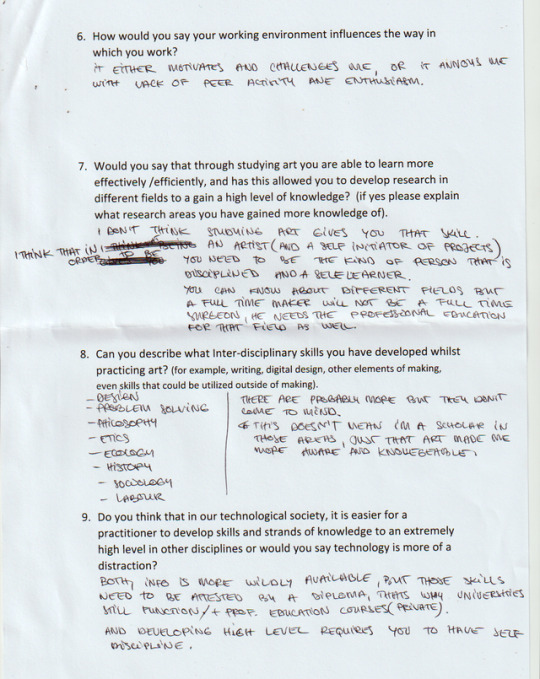 6. How would you say your working environment influences the way in
which you work?
IT EITHER MOTIVATES AND CHALLENGES ME, OR IT ANNOYS ME
WITH LACK OF PEER ACTIVITY ANE ENTHUSIASM.
7. Would you say that through studying art you are able to learn more
effectively /efficiently, and has this allowed you to develop research in
different fields to gain a high level of knowledge? (if yes please explain
what research areas you have gained more knowledge of).
I DON'T THINK STUDYING ART GIVES YOU THAT SKILL.
I THINK THAT IN AN ARTIST (AND A SELF INITIATOR OF PROJECTS)
ORDER TO BE YOU NEED TO BE THE KIND OF PERSON THAT IS
DISCIPLINED AND A SELF LEARNER.
YOU CAN KNOW ABOUT DIFFERENT FIELDS BUT
A FULL TIME MAKER WILL NOT BE A FULL TIME
SURGEON, HE NEEDS THE PROFESSIONAL EDUCATION
FOR THAT FIELD AS WELL.
8. Can you describe what Inter-disciplinary skills you have developed whilst
practicing art? (for example, writing, digital design, other elements of making,
even skills that could be utilized outside of making).
- DESIGN
- PROBLEM SOLVING
- PHILOSOPHY
- ETICS
- ECOLOGY
- HISTORY
- SOCIOLOGY
- LABOUR
THERE ARE PROBABLY MORE BUT THEY DON'T
COME TO MIND.
* THIS DOESN'T MEAN I'M A SCHOLAR IN
THOSE AREAS, JUST THAT ART MADE ME
MORE AWARE AND KNOWLEGEABLE.
9. Do you think that in our technological society, it is easier for a
practitioner to develop skills and strands of knowledge to an extremely
high level in other disciplines or would you say technology is more of a
distraction?
BOTH, INFO IS MORE WILDLY AVAILABLE, BUT THOSE SKILLS
NEED TO BE ATTESTED BY A DIPLOMA, THATS WHY UNIVERSITIES
STILL FUNCTION/+ PROF. EDUCATION COURSES (PRIVATE).
AND DEVELOPING HIGH LEVEL REQUIRES YOU TO HAVE SELF
DISCIPLINE.